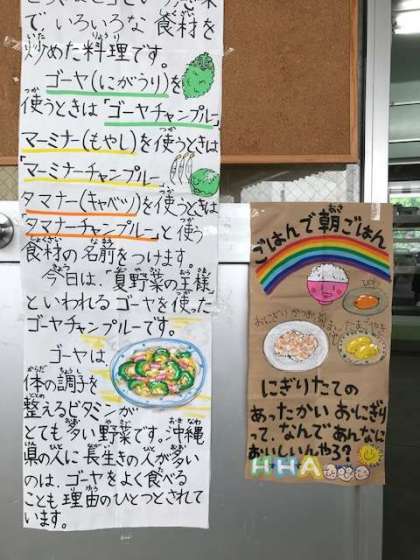 で、いろいろな 食材を
炒めた料理です。
ゴーヤ(にがうり)を
使うときは「ゴーヤチャンプルー」
マーミナー(もやし)を使うときは
「マーミナーチャンプルー
タマナー(キャベツ)を使うときは
「タマナーチャンプルー」と使う
食材の名前をつけます。
今日は、「夏野菜の王様」
といわれるゴーヤを使った
ゴーヤチャンプルーです。
ゴーヤは、
体の調子を
整えるビタミンが
とても多い野菜です。沖縄
県の人に長生きの人が多い
のは、ゴーヤをよく食べる
ことも理由のひとつとされて
います。
ごはんで朝ごはん
たまごやき
にぎりたての
あったかいおにぎり
って、なんであんなに
おいしいんやろ?
HHA